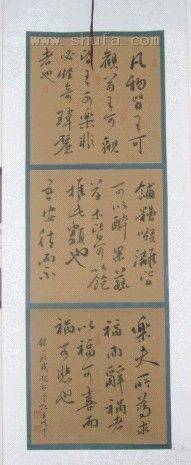 www.shufa.com
凡物皆有可
觀苟有可觀
皆有可樂非
必怪奇瑋麗
者也
餔糟啜漓皆
可以醉果蔬
草木皆可以飽
推此類也
吾安往而不
樂夫所為求
福而辭禍者
以福可喜而
禍可悲也